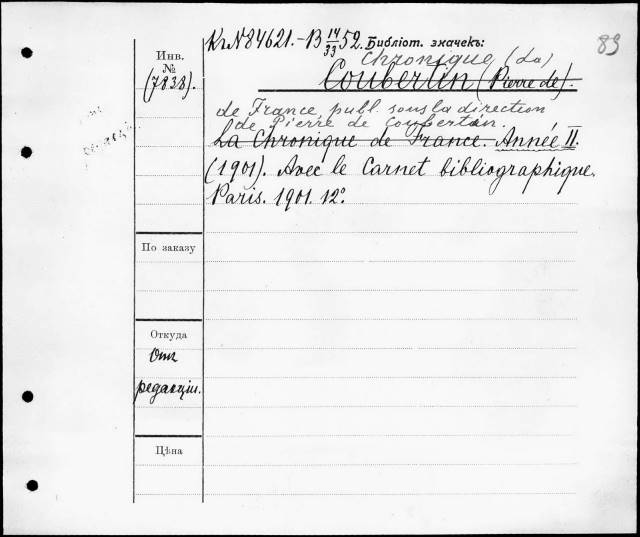 Кг№84621.-13 14/33 52. Библіот. значекъ:
89
Инв.
№
(7838).
Chronique (La)
Coubertin (Pierre de).
de France publ. sous la direction
de Pierre de Coubertin.
La Chronique de France. Année II.
(1901). Avec le Carnet bibliographique.
Paris. 1901. 12º.
По заказу
Откуда
Отъ
редакціи.
Цѣна